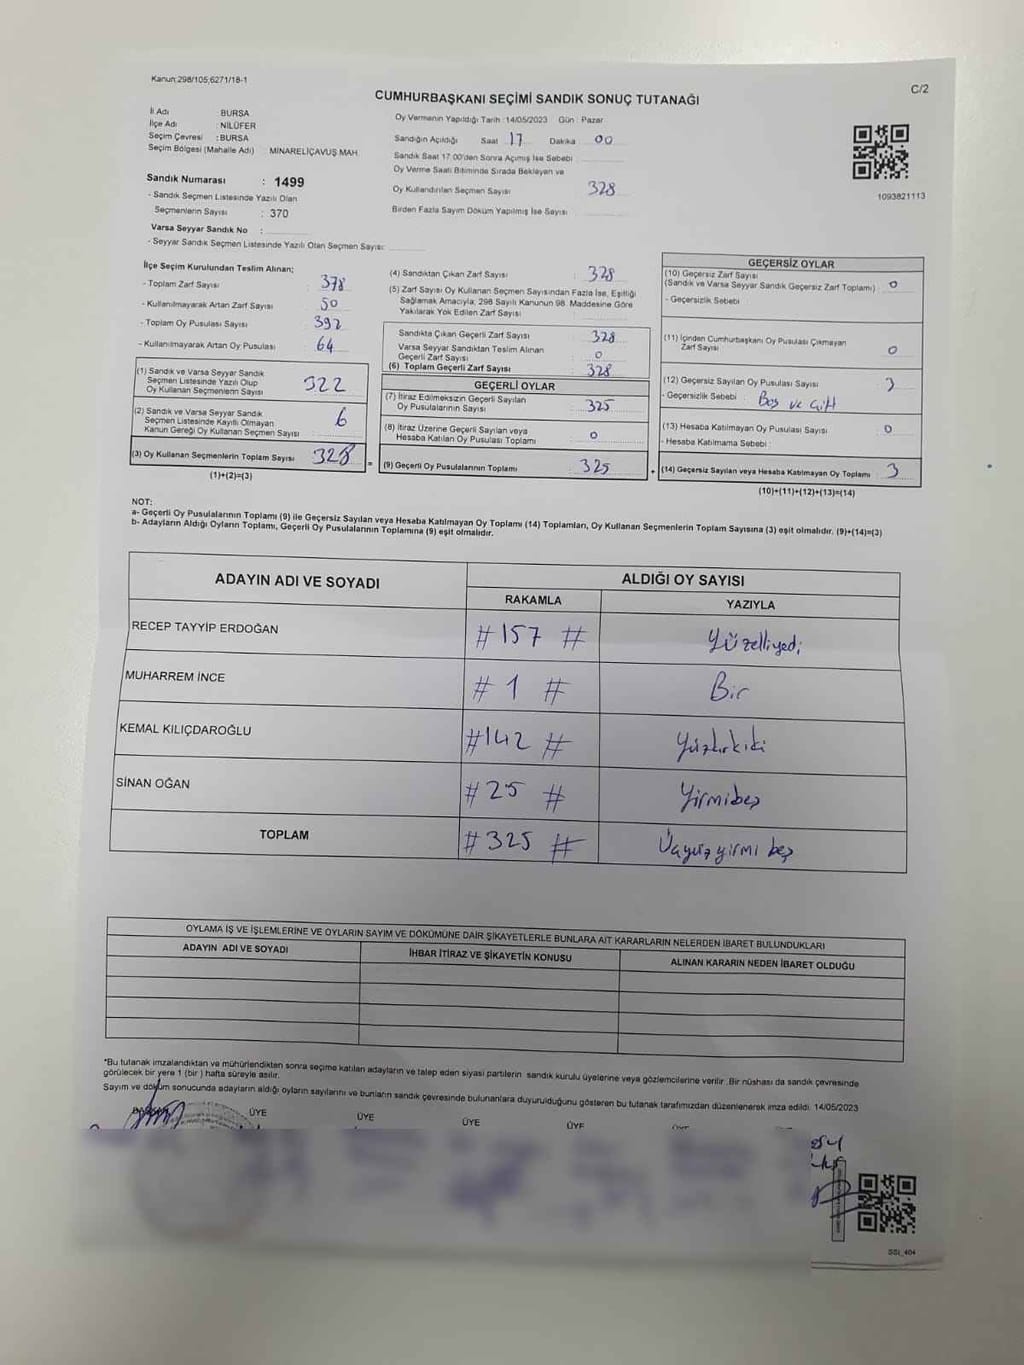 Kanun:298/105,6271/18-1
C/2
CUMHURBAŞKANI SEÇİMİ SANDIK SONUÇ TUTANAĞI
İl Adı BURSA
İlçe Adı : NİLÜFER
Seçim Çevresi : BURSA
Seçim Bölgesi (Mahalle Adı) MİNARELİÇAVUŞ MAH.
Sandık Numarası : 1499
- Sandık Seçmen Listesinde Yazılı Olan
Seçmenlerin Sayısı : 370
Varsa Seyyar Sandık No :
- Seyyar Sandık Seçmen Listesinde Yazılı Olan Seçmen Sayısı:
Oy Vermenin Yapıldığı Tarih :14/05/2023 Gün : Pazar
Sandığın Açıldığı Saat 17 Dakika 00
Sandık Saat 17:00'den Sonra Açımış İse Sebebi
Oy Verme Saati Bitiminde Sırada Bekleyen ve
Oy Kullandırılan Seçmen Sayısı 328
Birden Fazla Sayım Döküm Yapılmış İse Sayısı
1093821113
İlçe Seçim Kurulundan Teslim Alınan;
- Toplam Zarf Sayısı 378
- Kullanılmayarak Artan Zarf Sayısı 50
- Toplam Oy Pusulası Sayısı 392
- Kullanılmayarak Artan Oy Pusulası 64
(1) Sandık ve Varsa Seyyar Sandık
Seçmen Listesinde Yazılı Olup
Oy Kullanan Seçmenlerin Sayısı 322
(2) Sandık ve Varsa Seyyar Sandık
Seçmen Listesinde Kayıtlı Olmayan
Kanun Gereği Oy Kullanan Seçmen Sayısı 6
(3) Oy Kullanan Seçmenlerin Toplam Sayısı 328 =
(1)+(2)=(3)
(4) Sandıktan Çıkan Zarf Sayısı : 328
(5) Zarf Sayısı Oy Kullanan Seçmen Sayısından Fazla İse, Eşitliği
Sağlamak Amacıyla, 298 Sayılı Kanunun 98. Maddesine Göre
Yakılarak Yok Edilen Zarf Sayısı
Sandıkta Çıkan Geçerli Zarf Sayısı 328
Varsa Seyyar Sandıktan Teslim Alınan
Geçerli Zarf Sayısı 0
(6) Toplam Geçerli Zarf Sayısı 328
GEÇERLİ OYLAR
(7) İtiraz Edilmeksizin Geçerli Sayılan
Oy Pusulalarının Sayısı 325
(8) İtiraz Üzerine Geçerli Sayılan veya
Hesaba Katılan Oy Pusulası Toplamı 0
(9) Geçerli Oy Pusulalarının Toplamı 325 +
GEÇERSİZ OYLAR
(10) Geçersiz Zarf Sayısı
(Sandık ve Varsa Seyyar Sandık Geçersiz Zarf Toplamı) 0
- Geçersizlik Sebebi
(11) İçinden Cumhurbaşkanı Oy Pusulası Çıkmayan
Zarf Sayısı 0
(12) Geçersiz Sayılan Oy Pusulası Sayısı 3
- Geçersizlik Sebebi : Boş ve Çift
(13) Hesaba Katılmayan Oy Pusulası Sayısı 0
- Hesaba Katılmama Sebebi :
(14) Geçersiz Sayılan veya Hesaba Katılmayan Oy Toplamı 3
(10)+(11)+(12)+(13)=(14)
NOT:
a- Geçerli Oy Pusulalarının Toplamı (9) ile Geçersiz Sayılan veya Hesaba Katılmayan Oy Toplamı (14) Toplamları, Oy Kullanan Seçmenlerin Toplam Sayısına (3) eşit olmalıdır. (9)+(14)=(3)
b- Adayların Aldığı Oyların Toplamı, Geçerli Oy Pusulalarının Toplamına (9) eşit olmalıdır.
ADAYIN ADI VE SOYADI ALDIĞI OY SAYISI
RAKAMLA YAZIYLA
RECEP TAYYİP ERDOĞAN # 157 # Yüzelliyedi
MUHARREM İNCE # 1 # Bir
KEMAL KILIÇDAROĞLU #142 # Yüzkırkiki
SİNAN OĞAN # 25 # Yirmibeş
TOPLAM # 325 # Üçyüzyirmi beş
OYLAMA İŞ VE İŞLEMLERİNE VE OYLARIN SAYIM VE DÖKÜMÜNE DAİR ŞİKAYETLERLE BUNLARA AİT KARARLARIN NELERDEN İBARET BULUNDUKLARI
ADAYIN ADI VE SOYADI İHBAR İTİRAZ VE ŞİKAYETİN KONUSU ALINAN KARARIN NEDEN İBARET OLDUĞU
*Bu tutanak imzalandıktan ve mühürlendikten sonra seçime katılan adayların ve talep eden siyasi partilerin sandık kurulu üyelerine veya gözlemcilerine verilir. Bir nüshası da sandık çevresinde
görülecek bir yere 1 (bir) hafta süreyle asılır.
Sayım ve döküm sonucunda adayların aldığı oyların sayılarını ve bunların sandık çevresinde bulunanlara duyurulduğunu gösteren bu tutanak tarafımızdan düzenlenerek imza edildi. 14/05/2023
BAŞKAN ÜYE ÜYE ÜYE ÜYE
SSI_404